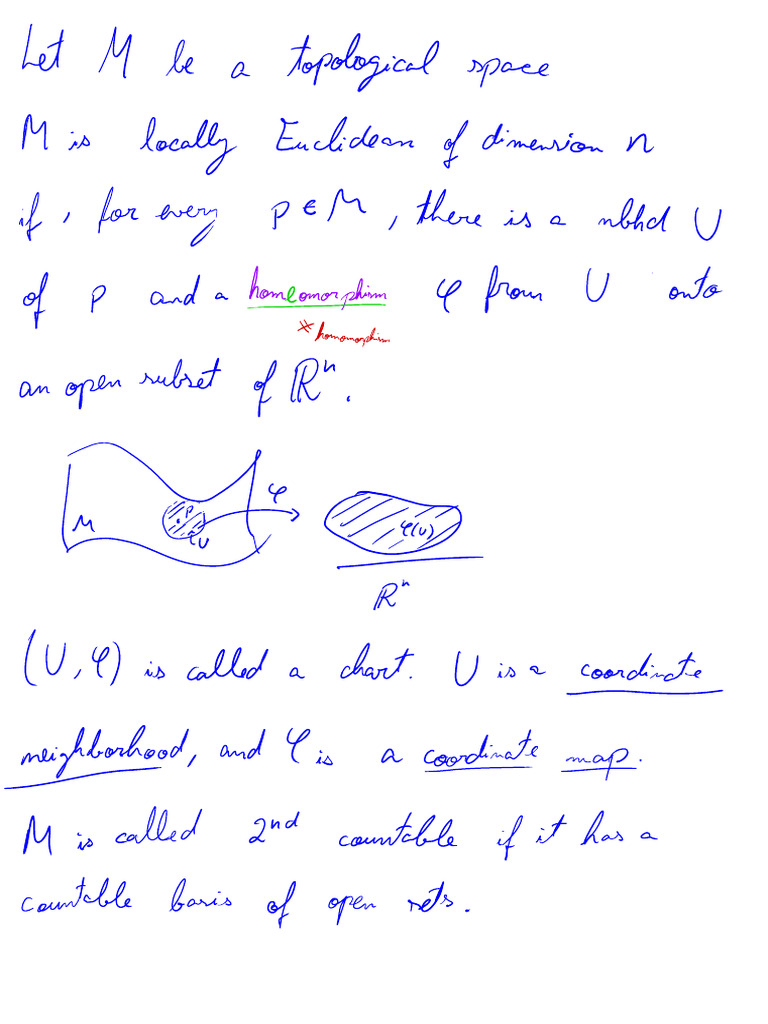 Let M be a topological space
M is locally Euclidean of dimension n
if, for every p ∈ M, there is a nbhd U
of p and a homeomorphism φ from U onto
* homomorphism
an open subset of ℝⁿ.
φ
p
M
U
φ(U)
ℝⁿ
(U, φ) is called a chart. U is a coordinate
neighborhood, and φ is a coordinate map.
M is called 2nd countable if it has a
countable basis of open sets.